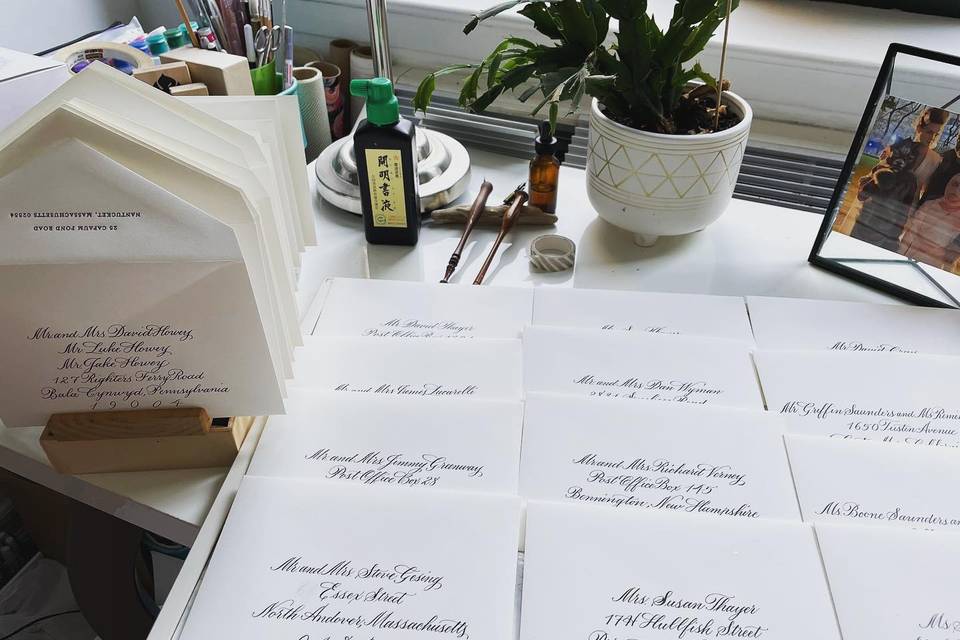 NANTUCKET, MASSACHUSETTS 02554
25 CAPAUM POND ROAD
Mr and Mrs David Howey
Mr Luke Howey
Mr Jake Howey
127 Righters Ferry Road
Bala Cynwyd, Pennsylvania
19004
開明書液
Mr David Thayer
Post Office Box
Mr David
Mr and Mrs James Iacarelle
Mr and Mrs Dan Wyman
Mr Griffin Saunders and Ms
1650 Tustin Avenue
Mr and Mrs Jimmy Granway
Post Office Box 28
Mr and Mrs Richard Verney
Post Office Box 145
Bennington, New Hampshire
Ms Boone Saunders an
Mr and Mrs Steve Gesing
Essex Street
North Andover, Massachusetts
Mrs Susan Thayer
Street
Ms